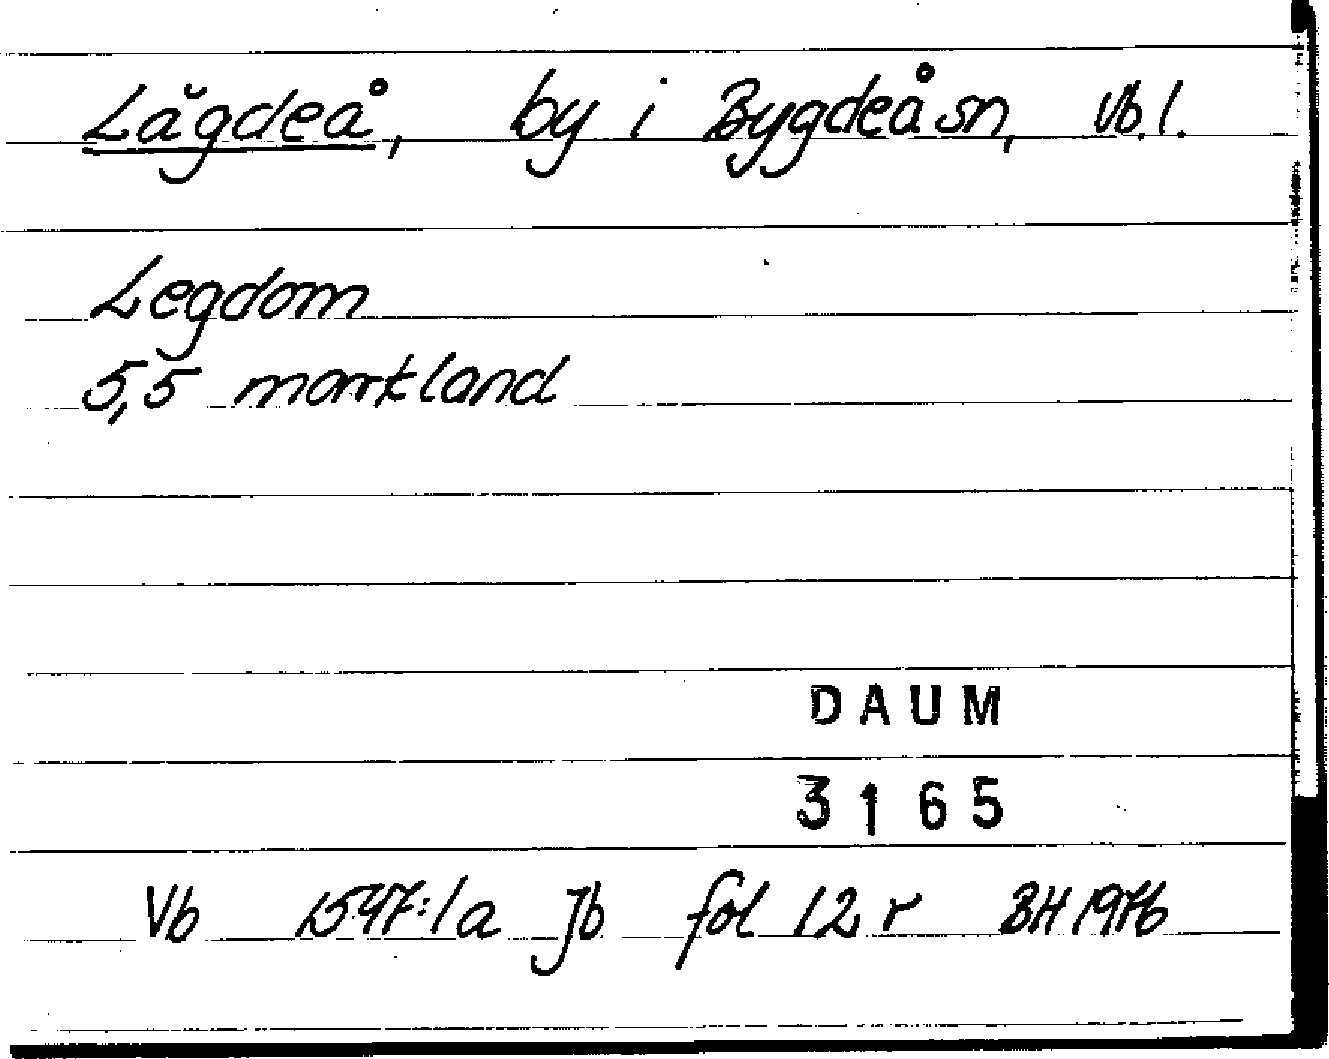 Lägdeå, by i Bygdeå sn, Vb. l.
Legdom
5,5 markland
DAUM
3165
Vb 1547:1a Jb fol 12 r BH 1976